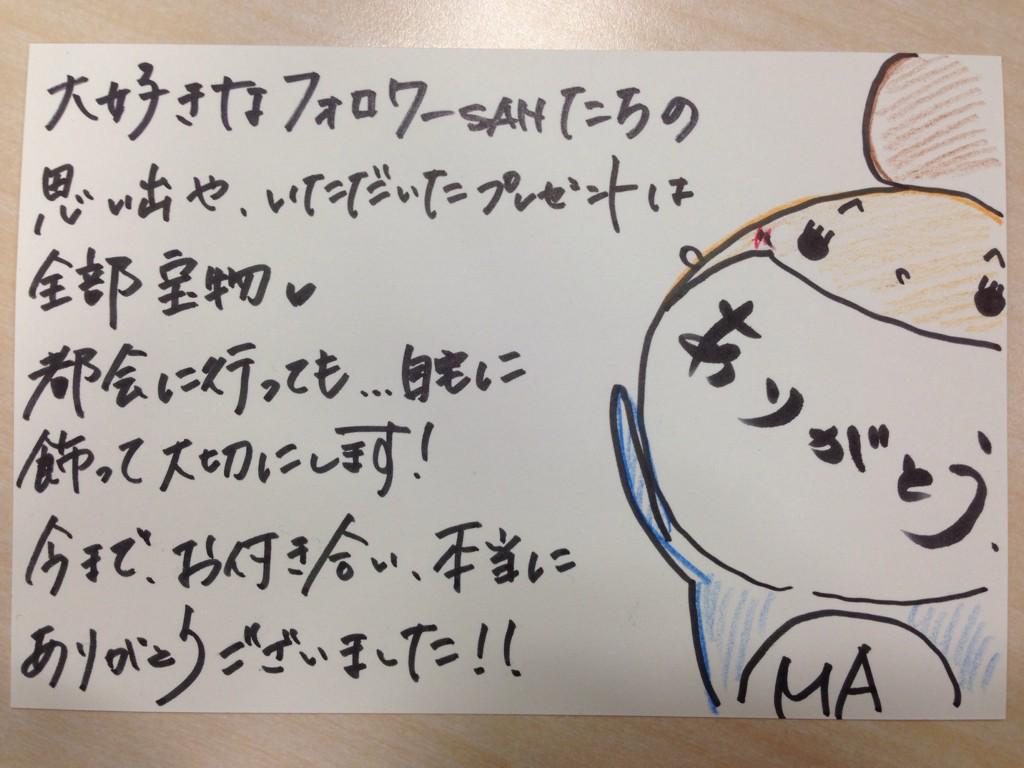 大好きなフォロワーSANたちの
思い出や、いただいたプレゼントは
全部宝物♥
都会に行っても...自宅に
飾って大切にします!
今まで、お付き合い、本当に
ありがとうございました!!
ありがとう
MA